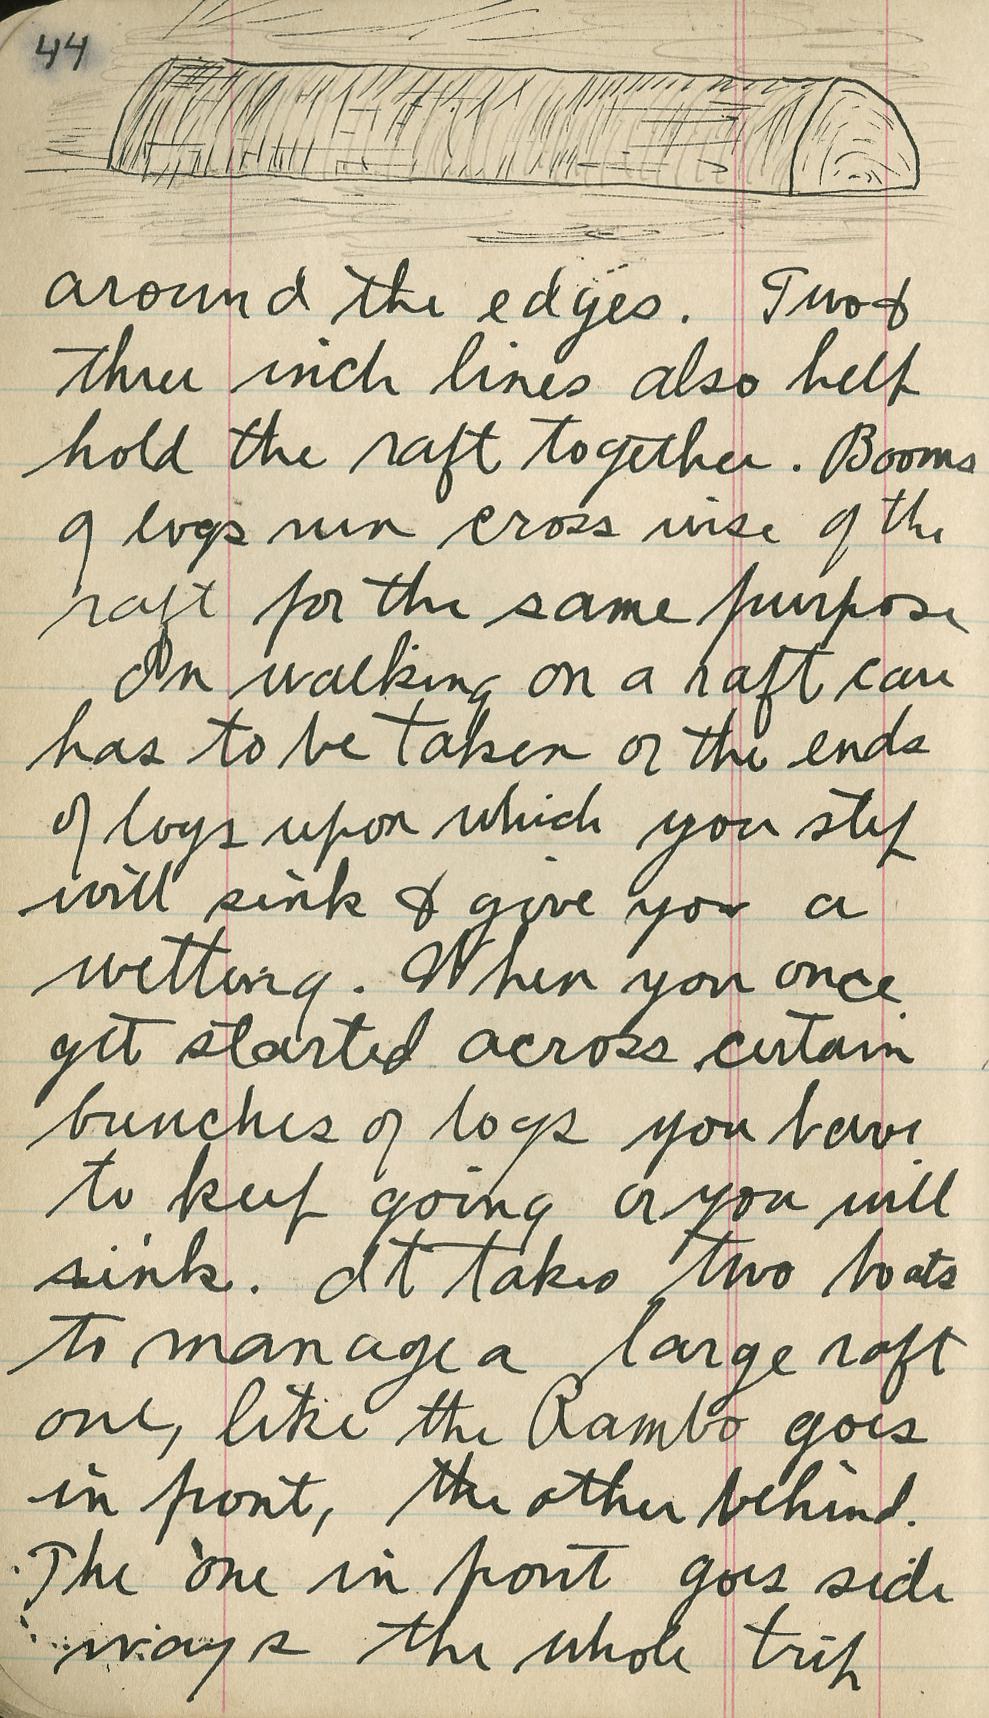 44
around the edges. Two &
three inch lines also help
hold the raft together. Booms
of logs run cross wise of the
raft for the same purpose
In walking on a raft care
has to be taken or the ends
of logs upon which you step
will sink & give you a
wetting. When you once
get started across certain
bunches of logs you have
to keep going or you will
sink. It takes two boats
to manage a large raft
one, like the Rambo goes
in front, the other behind.
The one in front goes side
ways the whole trip